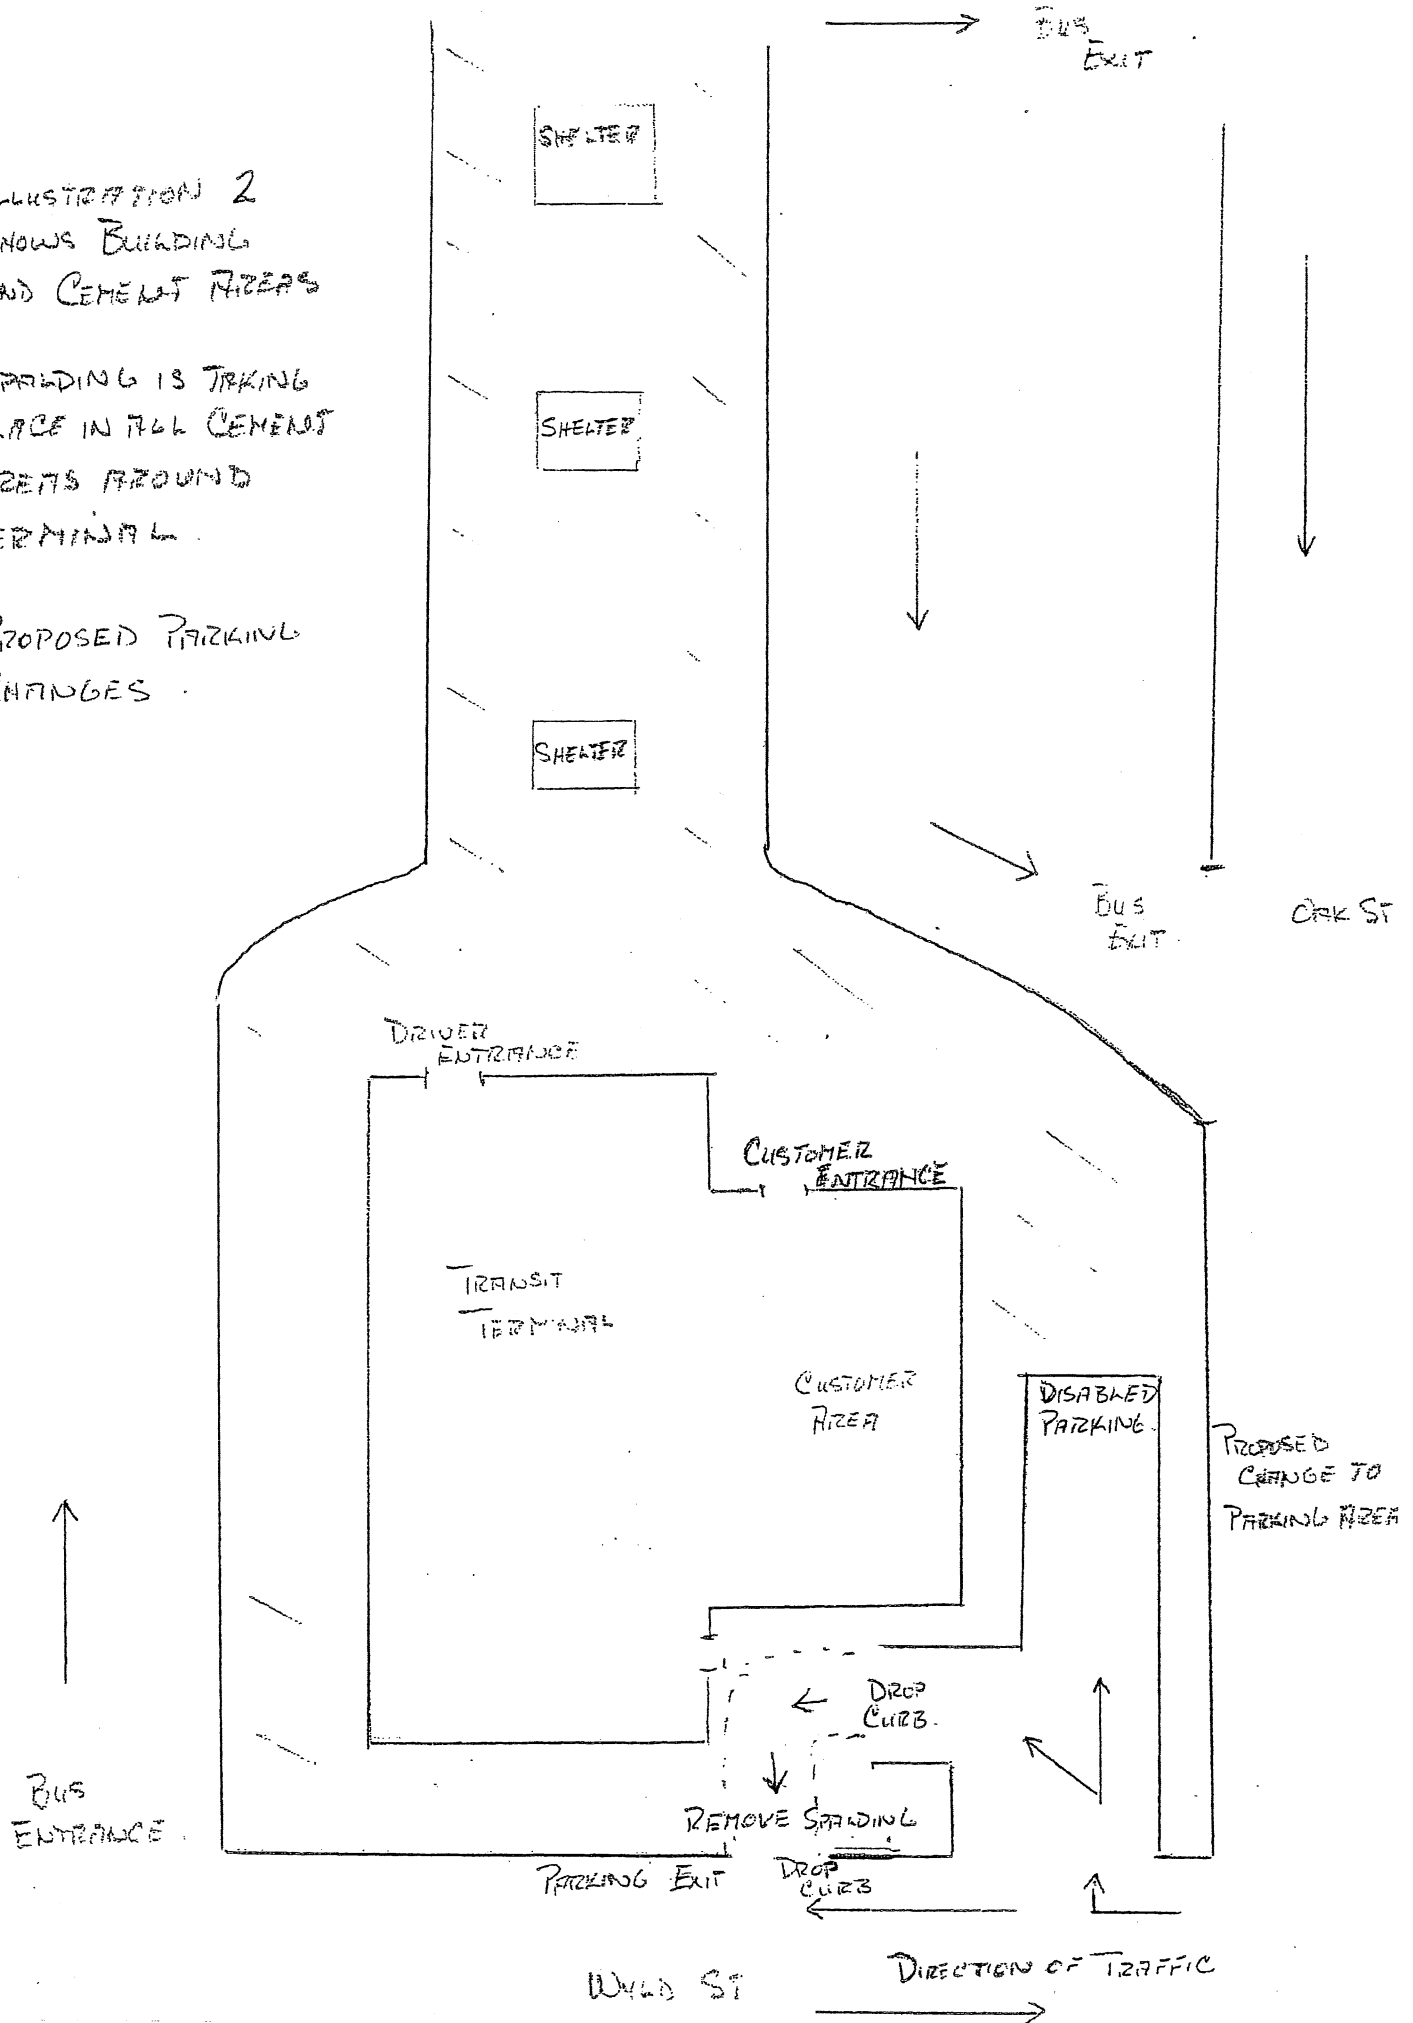 BUS
EXIT
SHELTER
LLUSTRATION 2
HOWS BUILDING
ND CEMENT AREAS
PALDING IS TAKING
LACE IN ALL CEMENT
REAS AROUND
ERMINAL.
ROPOSED PARKING
HANGES.
SHELTER
SHELTER
BUS
EXIT.
OAK ST
DRIVER
ENTRANCE
CUSTOMER
ENTRANCE
TRANSIT
TERMINAL
CUSTOMER
AREA
DISABLED
PARKING.
PROPOSED
CHANGE TO
PARKING AREA
DROP
CURB.
BUS
ENTRANCE.
REMOVE SPALDING
PARKING EXIT
DROP
CURB
DIRECTION OF TRAFFIC
WYLD ST